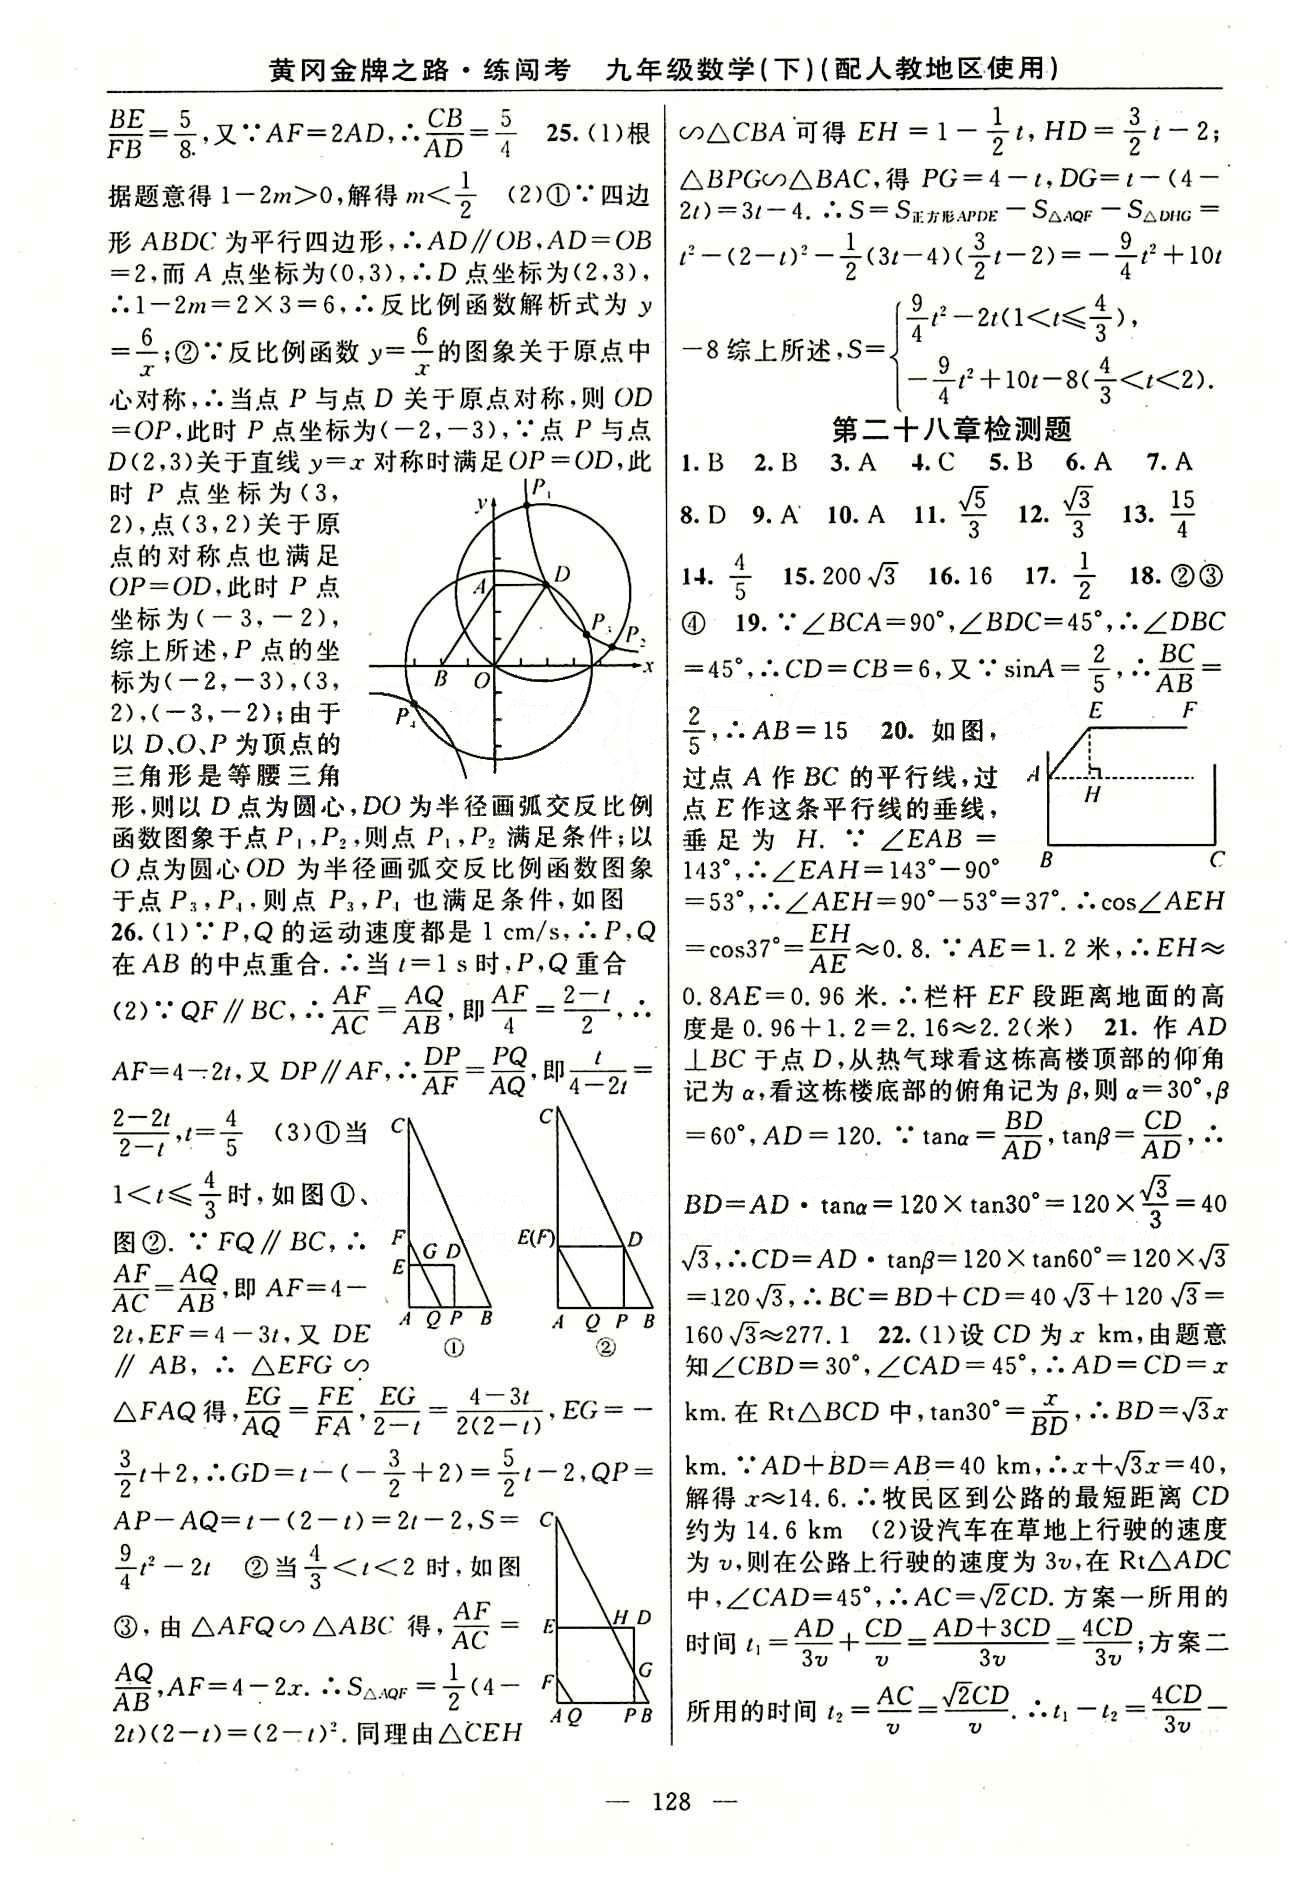 黄冈金牌之路·练闯考 九年级数学(下)(配人教地区使用)
BE/FB=5/8,又∵AF=2AD,∴CB/AD=5/4 25.(1)根
据题意得1-2m>0,解得m<1/2 (2)①∵四边
形ABDC为平行四边形,∴AD∥OB,AD=OB
=2,而A点坐标为(0,3),∴D点坐标为(2,3),
∴1-2m=2×3=6,∴反比例函数解析式为y
=6/x;②∵反比例函数y=6/x的图象关于原点中
心对称,∴当点P与点D关于原点对称,则OD
=OP,此时P点坐标为(-2,-3),∵点P与点
D(2,3)关于直线y=x对称时满足OP=OD,此
时P点坐标为(3,
2),点(3,2)关于原
点的对称点也满足
OP=OD,此时P点
坐标为(-3,-2),
综上所述,P点的坐
标为(-2,-3),(3,
2),(-3,-2);由于
以D、O、P为顶点的
三角形是等腰三角
y P₁ A D P₃ P₂ B O x P₄
形,则以D点为圆心,DO为半径画弧交反比例
函数图象于点P₁,P₂,则点P₁,P₂满足条件;以
O点为圆心OD为半径画弧交反比例函数图象
于点P₃,P₄,则点P₃,P₄也满足条件,如图
26.(1)∵P,Q的运动速度都是1 cm/s,∴P,Q
在AB的中点重合.∴当t=1 s时,P,Q重合
(2)∵QF∥BC,∴AF/AC=AQ/AB,即AF/4=(2-t)/2,∴
AF=4-2t,又DP∥AF,∴DP/AF=PQ/AQ,即t/(4-2t)=
(2-2t)/(2-t),t=4/5 (3)①当
1<t≤4/3时,如图①、
图②.∵FQ∥BC,∴
AF/AC=AQ/AB,即AF=4-
2t,EF=4-3t,又DE
∥AB,∴△EFG∽
C F G D E A Q P B ①
C E(F) D A Q P B ②
△FAQ得,EG/AQ=FE/FA,EG/(2-t)=(4-3t)/2(2-t),EG=-
3/2t+2,∴GD=t-(-3/2+2)=5/2t-2,QP=
AP-AQ=t-(2-t)=2t-2,S=
9/4t²-2t ②当4/3<t<2时,如图
③,由△AFQ∽△ABC得,AF/AC=
AQ/AB,AF=4-2x.∴S△AQF=1/2(4-
2t)(2-t)=(2-t)².同理由△CEH
C E H D F G A Q P B
∽△CBA可得EH=1-1/2t,HD=3/2t-2;
△BPG∽△BAC,得PG=4-t,DG=t-(4-
2t)=3t-4.∴S=S正方形APDE-S△AQF-S△DHG=
t²-(2-t)²-1/2(3t-4)(3/2t-2)=-9/4t²+10t
-8综上所述,S={9/4t²-2t(1<t≤4/3),
-9/4t²+10t-8(4/3<t<2).
第二十八章检测题
1.B 2.B 3.A 4.C 5.B 6.A 7.A
8.D 9.A 10.A 11.√5/3 12.√3/3 13.15/4
14.4/5 15.200√3 16.16 17.1/2 18.②③
④ 19.∵∠BCA=90°,∠BDC=45°,∴∠DBC
=45°,∴CD=CB=6,又∵sinA=2/5,∴BC/AB=
2/5,∴AB=15 20.如图,
过点A作BC的平行线,过
点E作这条平行线的垂线,
垂足为H.∵∠EAB=
143°,∴∠EAH=143°-90°
E F A H B C
=53°,∴∠AEH=90°-53°=37°.∴cos∠AEH
=cos37°=EH/AE≈0.8.∵AE=1.2米,∴EH≈
0.8AE=0.96米.∴栏杆EF段距离地面的高
度是0.96+1.2=2.16≈2.2(米) 21.作AD
⊥BC于点D,从热气球看这栋高楼顶部的仰角
记为α,看这栋楼底部的俯角记为β,则α=30°,β
=60°,AD=120.∵tanα=BD/AD,tanβ=CD/AD,∴
BD=AD·tanα=120×tan30°=120×√3/3=40
√3,∴CD=AD·tanβ=120×tan60°=120×√3
=120√3,∴BC=BD+CD=40√3+120√3=
160√3≈277.1 22.(1)设CD为x km,由题意
知∠CBD=30°,∠CAD=45°,∴AD=CD=x
km.在Rt△BCD中,tan30°=x/BD,∴BD=√3x
km.∵AD+BD=AB=40 km,∴x+√3x=40,
解得x≈14.6.∴牧民区到公路的最短距离CD
约为14.6 km (2)设汽车在草地上行驶的速度
为v,则在公路上行驶的速度为3v,在Rt△ADC
中,∠CAD=45°,∴AC=√2CD.方案一所用的
时间t₁=AD/3v+CD/v=(AD+3CD)/3v=4CD/3v;方案二
所用的时间t₂=AC/v=√2CD/v.∴t₁-t₂=4CD/3v-
— 128 —